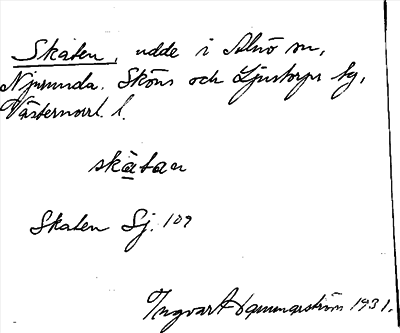 Skaten, udde i Alnö sn,
Njurunda, Sköns och Ljustorps tg,
Västernorrl. l.
skàtan
Skaten Sj. 109
Ingvart Hammarström 1931.